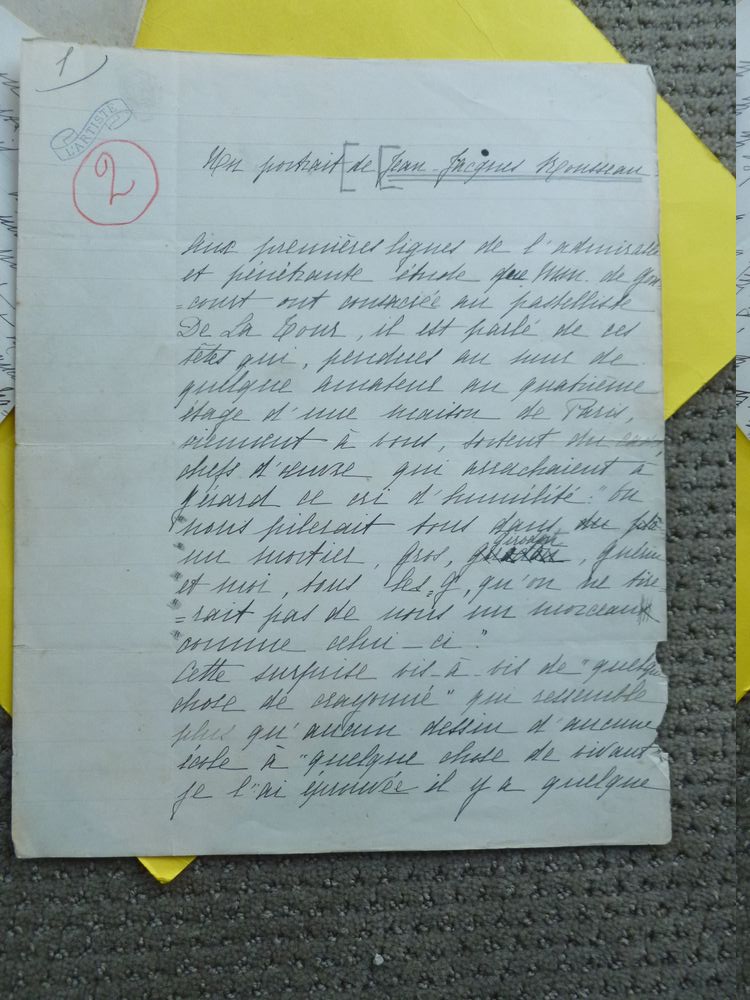 1
L'ARTISTE
2
Un portrait [de [Jean-Jacques Rousseau
Aux premières lignes de l'admirable
et pénétrante étude que Mm. de Gon
=court ont consacrée au pastelliste
De La Tour, il est parlé de ces
têtes qui, pendues au mur de
quelque amateur au quatrième
étage d'une maison de Paris,
viennent à vous, sortent du
chefs d'œuvre qui arrachaient à
Gérard ce cri d'humilité: "On
nous pilerait tous dans
un mortier, Gros, Girodet, Guérin
et moi, tous les G, qu'on ne tire=
=rait pas de nous un morceau
comme celui-ci".
Cette surprise vis-à-vis de "quelque
chose de crayonné" qui ressemble
plus qu'aucun dessin d'aucune
école à "quelque chose de vivant"
je l'ai éprouvée il y a quelque